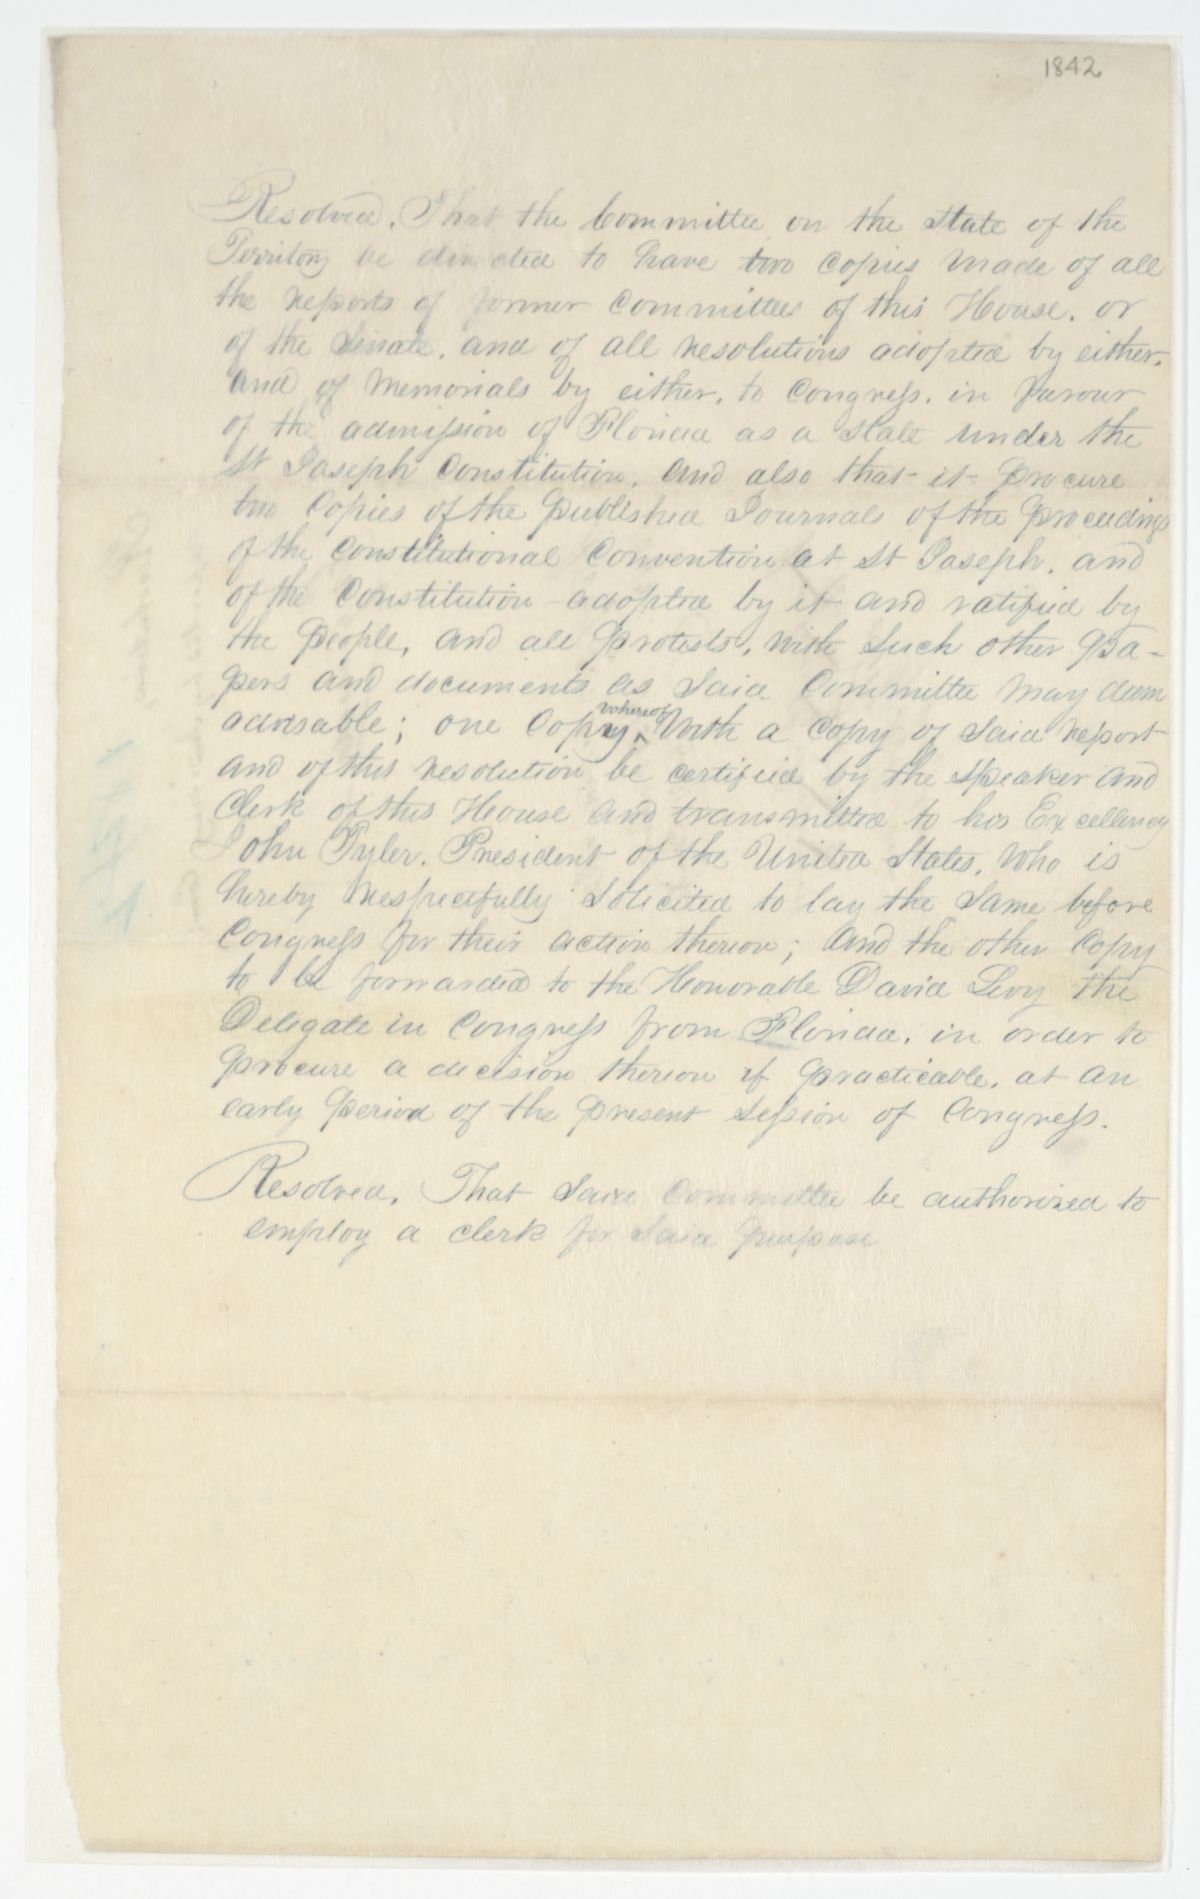 1842
Resolved, That the Committee on the State of the
Territory be directed to have two copies made of all
the reports of former Committees of this House, or
of the Senate, and of all resolutions adopted by either,
and of Memorials by either, to Congress, in favour
of the admission of Florida as a State under the
St Joseph Constitution, and also that it procure
two Copies of the published Journals of the proceedings
of the Constitutional Convention at St Joseph, and
of the Constitution adopted by it and ratified by
the people, and all protests, with such other pa-
pers and documents as said Committee may deem
advisable; one Copy, whereof With a Copy of said report
and of this resolution be certified by the Speaker and
Clerk of this House and transmitted to his Excellency
John Tyler, President of the United States, who is
hereby respectfully solicited to lay the same before
Congress for their action thereon; and the other Copy
to be forwarded to the Honorable David Levy the
Delegate in Congress from Florida, in order to
procure a decision thereon if practicable, at an
early period of the present session of Congress.
Resolved, That said Committee be authorized to
employ a clerk for said purpose